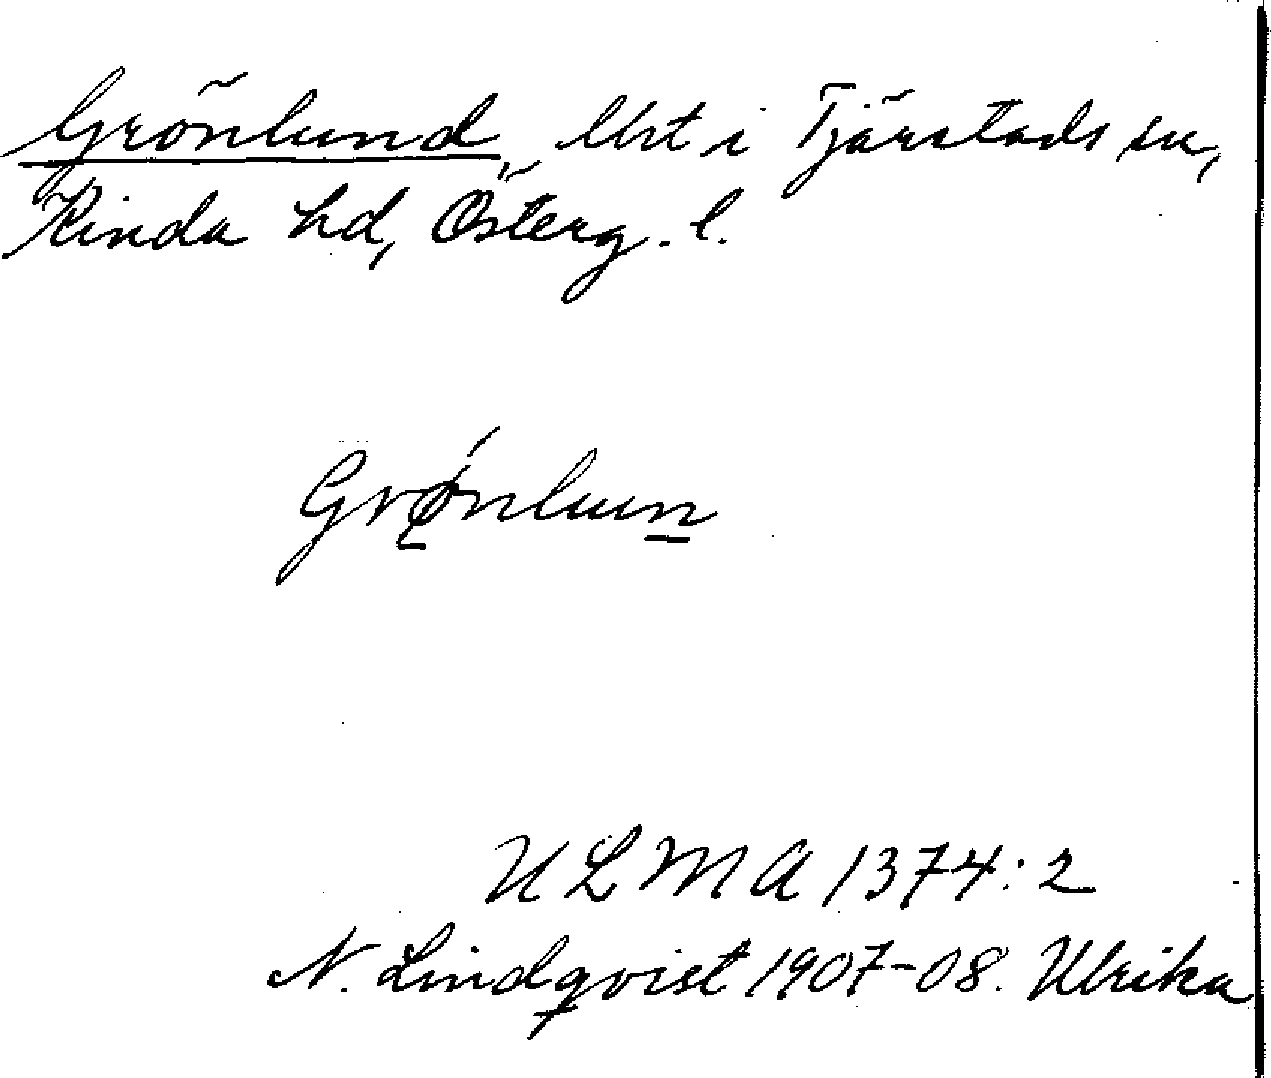 Grönlund, Ust i Tjärstads sn,
Kinda hd, Österg. l.
Grǿ̱nlun̲
ULMA 1374:2
N. Lindqvist 1907-08. Ulrika